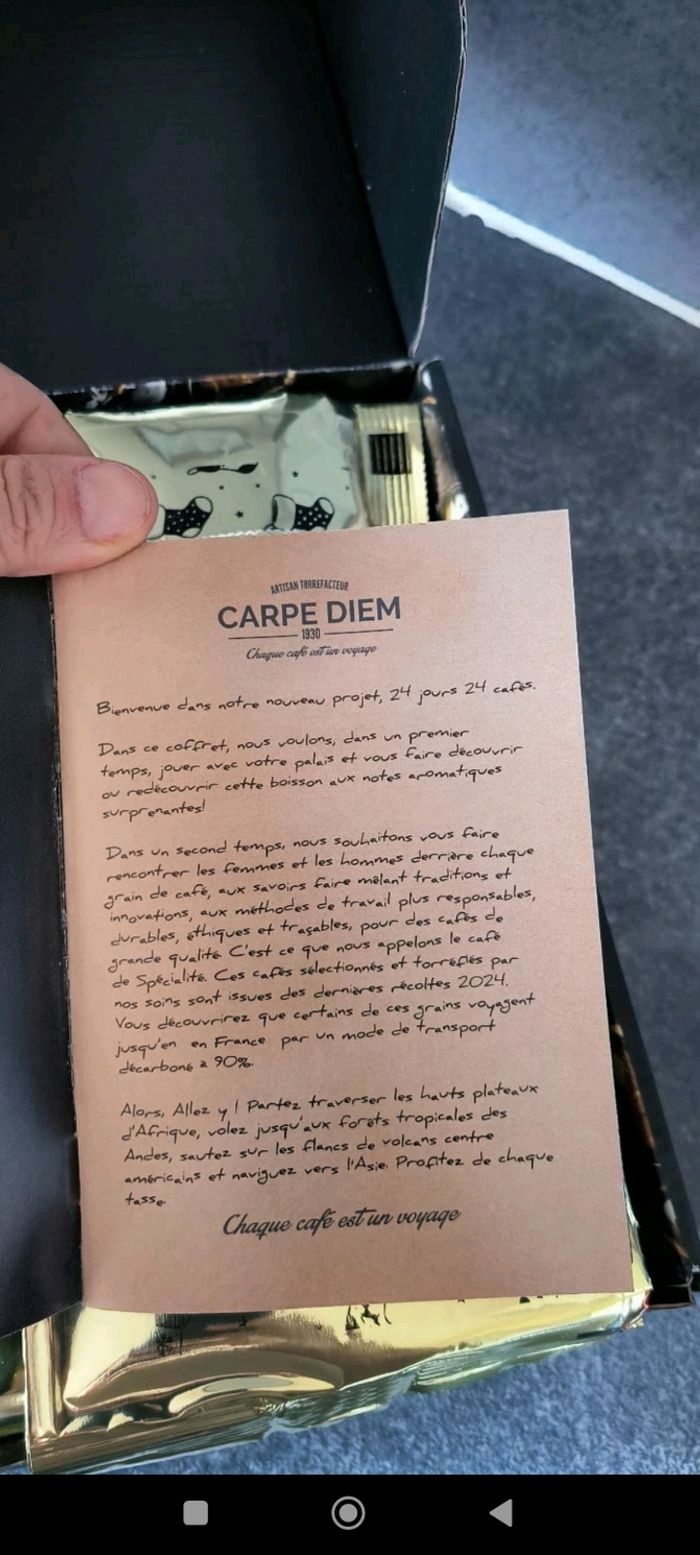 ARTISAN TORREFACTEUR
CARPE DIEM
1930
Chaque café est un voyage
Bienvenue dans notre nouveau projet, 24 jours 24 cafés.
Dans ce coffret, nous voulons, dans un premier
temps, jouer avec votre palais et vous faire découvrir
ou redécouvrir cette boisson aux notes aromatiques
surprenantes!
Dans un second temps, nous souhaitons vous faire
rencontrer les femmes et les hommes derrière chaque
grain de café, aux savoirs faire mêlant traditions et
innovations, aux méthodes de travail plus responsables,
durables, éthiques et traçables, pour des cafés de
grande qualité. C'est ce que nous appelons le café
de Spécialité. Ces cafés sélectionnés et torréfiés par
nos soins sont issues des dernières récoltes 2024.
Vous découvrirez que certains de ces grains voyagent
jusqu'en en France par un mode de transport
décarboné à 90%.
Alors, Allez y ! Partez traverser les hauts plateaux
d'Afrique, volez jusqu'aux forêts tropicales des
Andes, sautez sur les flancs de volcans centre
américains et naviguez vers l'Asie. Profitez de chaque
tasse.
Chaque café est un voyage